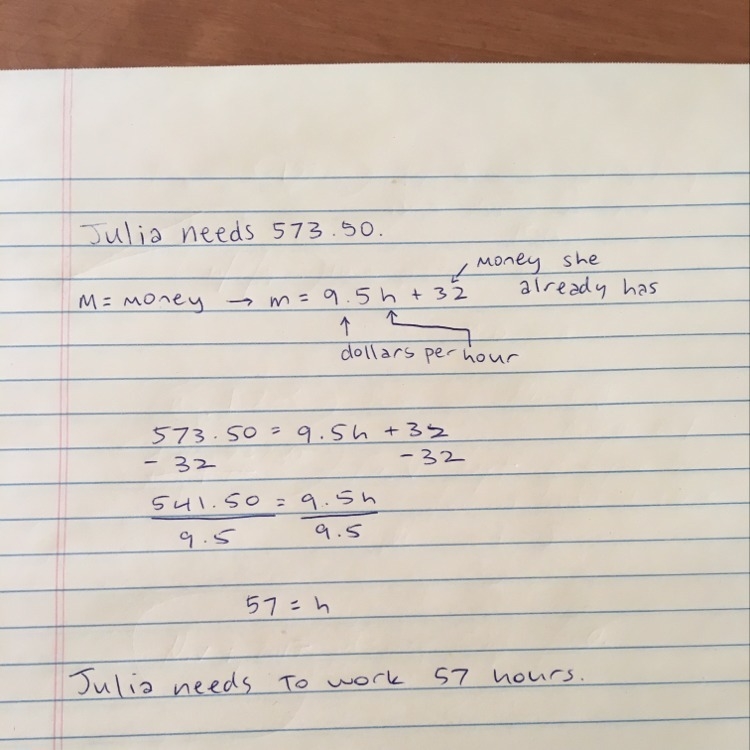 Julia needs 573.50.
money she
already has
M = money → m = 9.5h + 32
dollars per hour
573.50 = 9.5h + 32
- 32 - 32
541.50 = 9.5h
9.5 9.5
57 = h
Julia needs to work 57 hours.